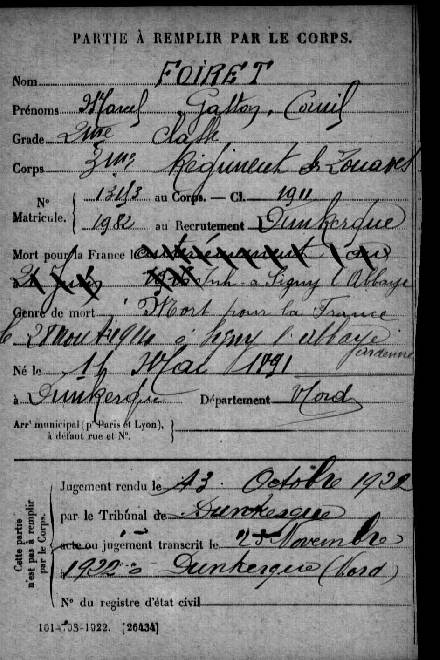 PARTIE À REMPLIR PAR LE CORPS.
Nom FOIRET
Prénoms Marcel Gaston
Grade 2me Classe
Corps 3me Régiment de Zouaves
N° Matricule. au Corps. — Cl. 1911
1982 au Recrutement Dunkerque
Mort pour la France le
à à Signy l'Abbaye
Genre de mort Mort pour la France
à Signy l'abbaye
Ardennes
Né le Mai 1891
à Dunkerque Département Nord
Arrt municipal (pr Paris et Lyon), à défaut rue et N°.
Cette partie n'est pas à remplir par le Corps.
Jugement rendu le 13 Octobre 1922
par le Tribunal de Dunkerque
acte ou jugement transcrit le 25 Novembre
1922 à Dunkerque (Nord)
N° du registre d'état civil
101-708-1922. [26434]